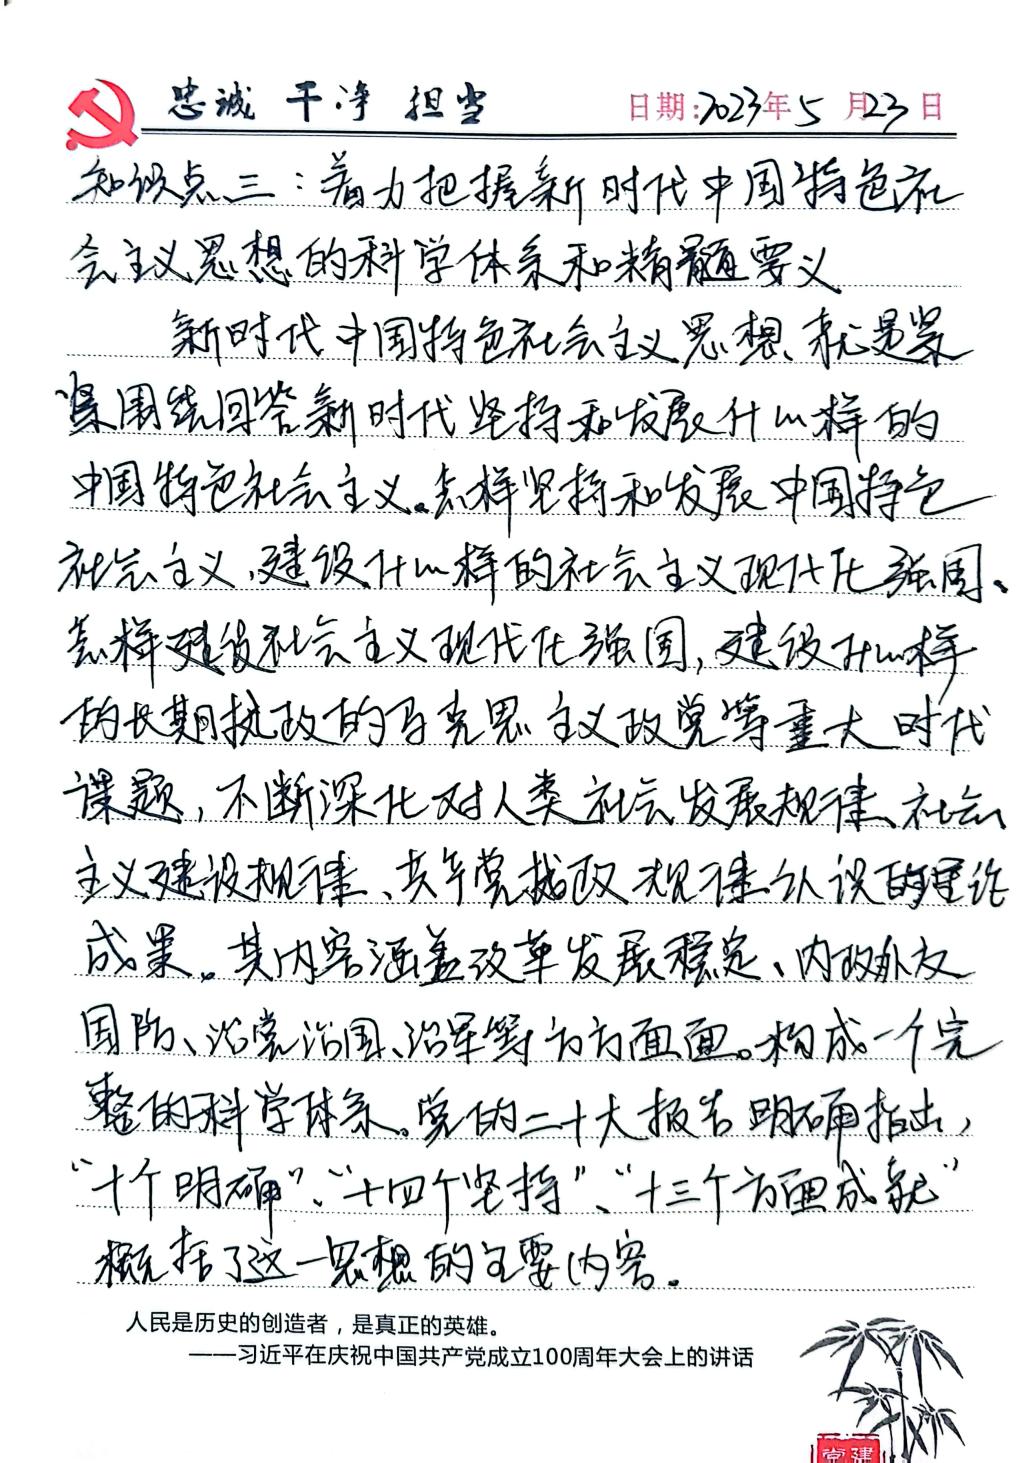 忠诚 干净 担当
日期:2023年5月23日
知识点三:着力把握新时代中国特色社
会主义思想的科学体系和精髓要义
新时代中国特色社会主义思想、就是紧
紧围绕回答新时代坚持和发展什么样的
中国特色社会主义。怎样坚持和发展中国特色
社会主义、建设什么样的社会主义现代化强国、
怎样建设社会主义现代化强国,建设什么样
的长期执政的马克思主义政党等重大时代
课题,不断深化对人类社会发展规律、社会
主义建设规律、共产党执政规律认识的理论
成果。其内容涵盖改革发展稳定、内政外交
国防、治党治国、治军等方方面面。构成一个完
整的科学体系。党的二十大报告明确指出,
“十个明确”、“十四个坚持”、“十三个方面成就”
概括了这一思想的主要内容。
人民是历史的创造者,是真正的英雄。
——习近平在庆祝中国共产党成立100周年大会上的讲话
党建